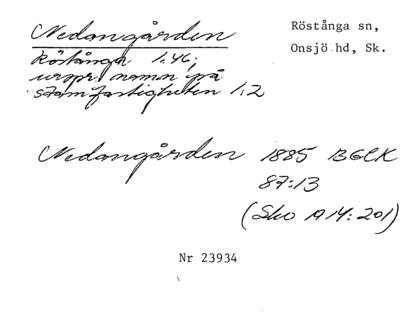 Nedangården
Röstånga 1:46;
urspr. namn på
stamfastigheten 1:2
Röstånga sn,
Onsjö hd, Sk.
Nedangården 1885 BGLK
87:13
(Sko A14:201)
Nr 23934